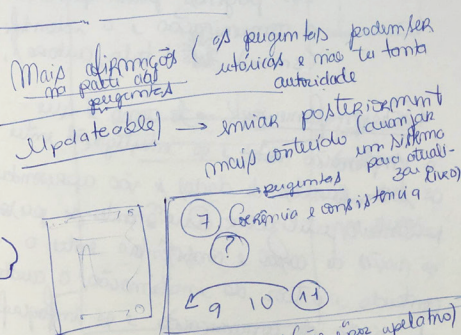 Mais afirmações ( as perguntas podem ser
na parte das retóricas e não ter tanta
perguntas autoridade
Updateable) → enviar posteriorment
mais conteúdo (arranjar
um sistema
para atuali-
zar livro)
→ perguntas
7 Coerência e consistência
?
9 10 11